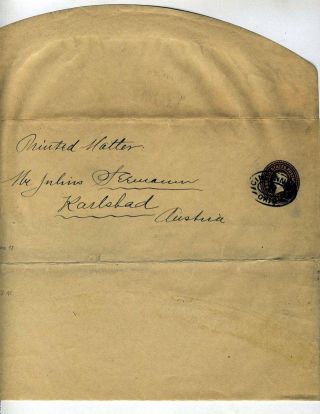 Printed Matter.
Mr Julius
Karlsbad
Austria